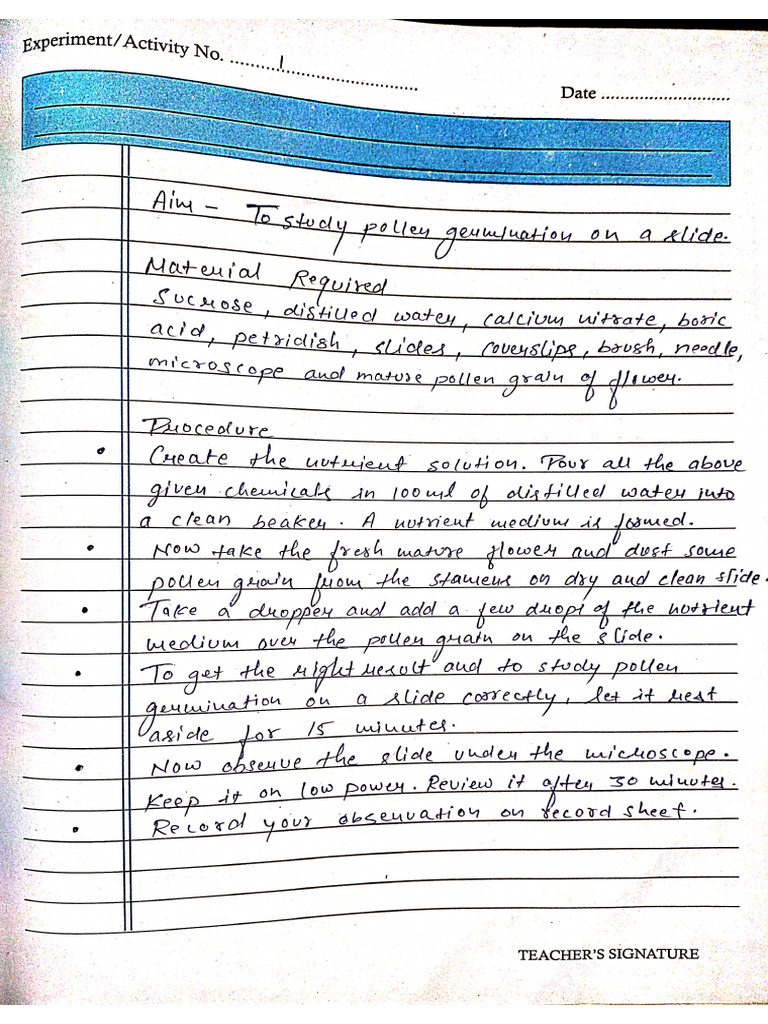 Experiment/Activity No. ..........1..............................
Date ...........................
Aim - To study pollen germination on a slide.
Material Required
Sucrose, distilled water, calcium nitrate, boric
acid, petridish, slides, coverslips, brush, needle,
microscope and mature pollen grain of flower.
Procedure
• Create the nutrient solution. Pour all the above
given chemicals in 100ml of distilled water into
a clean beaker. A nutrient medium is formed.
• Now take the fresh mature flower and dust some
pollen grain from the stamens on dry and clean slide.
• Take a dropper and add a few drops of the nutrient
medium over the pollen grain on the slide.
• To get the right result and to study pollen
germination on a slide correctly, let it rest
aside for 15 minutes.
• Now observe the slide under the microscope.
Keep it on low power. Review it after 30 minutes.
• Record your observation on record sheet.
TEACHER'S SIGNATURE